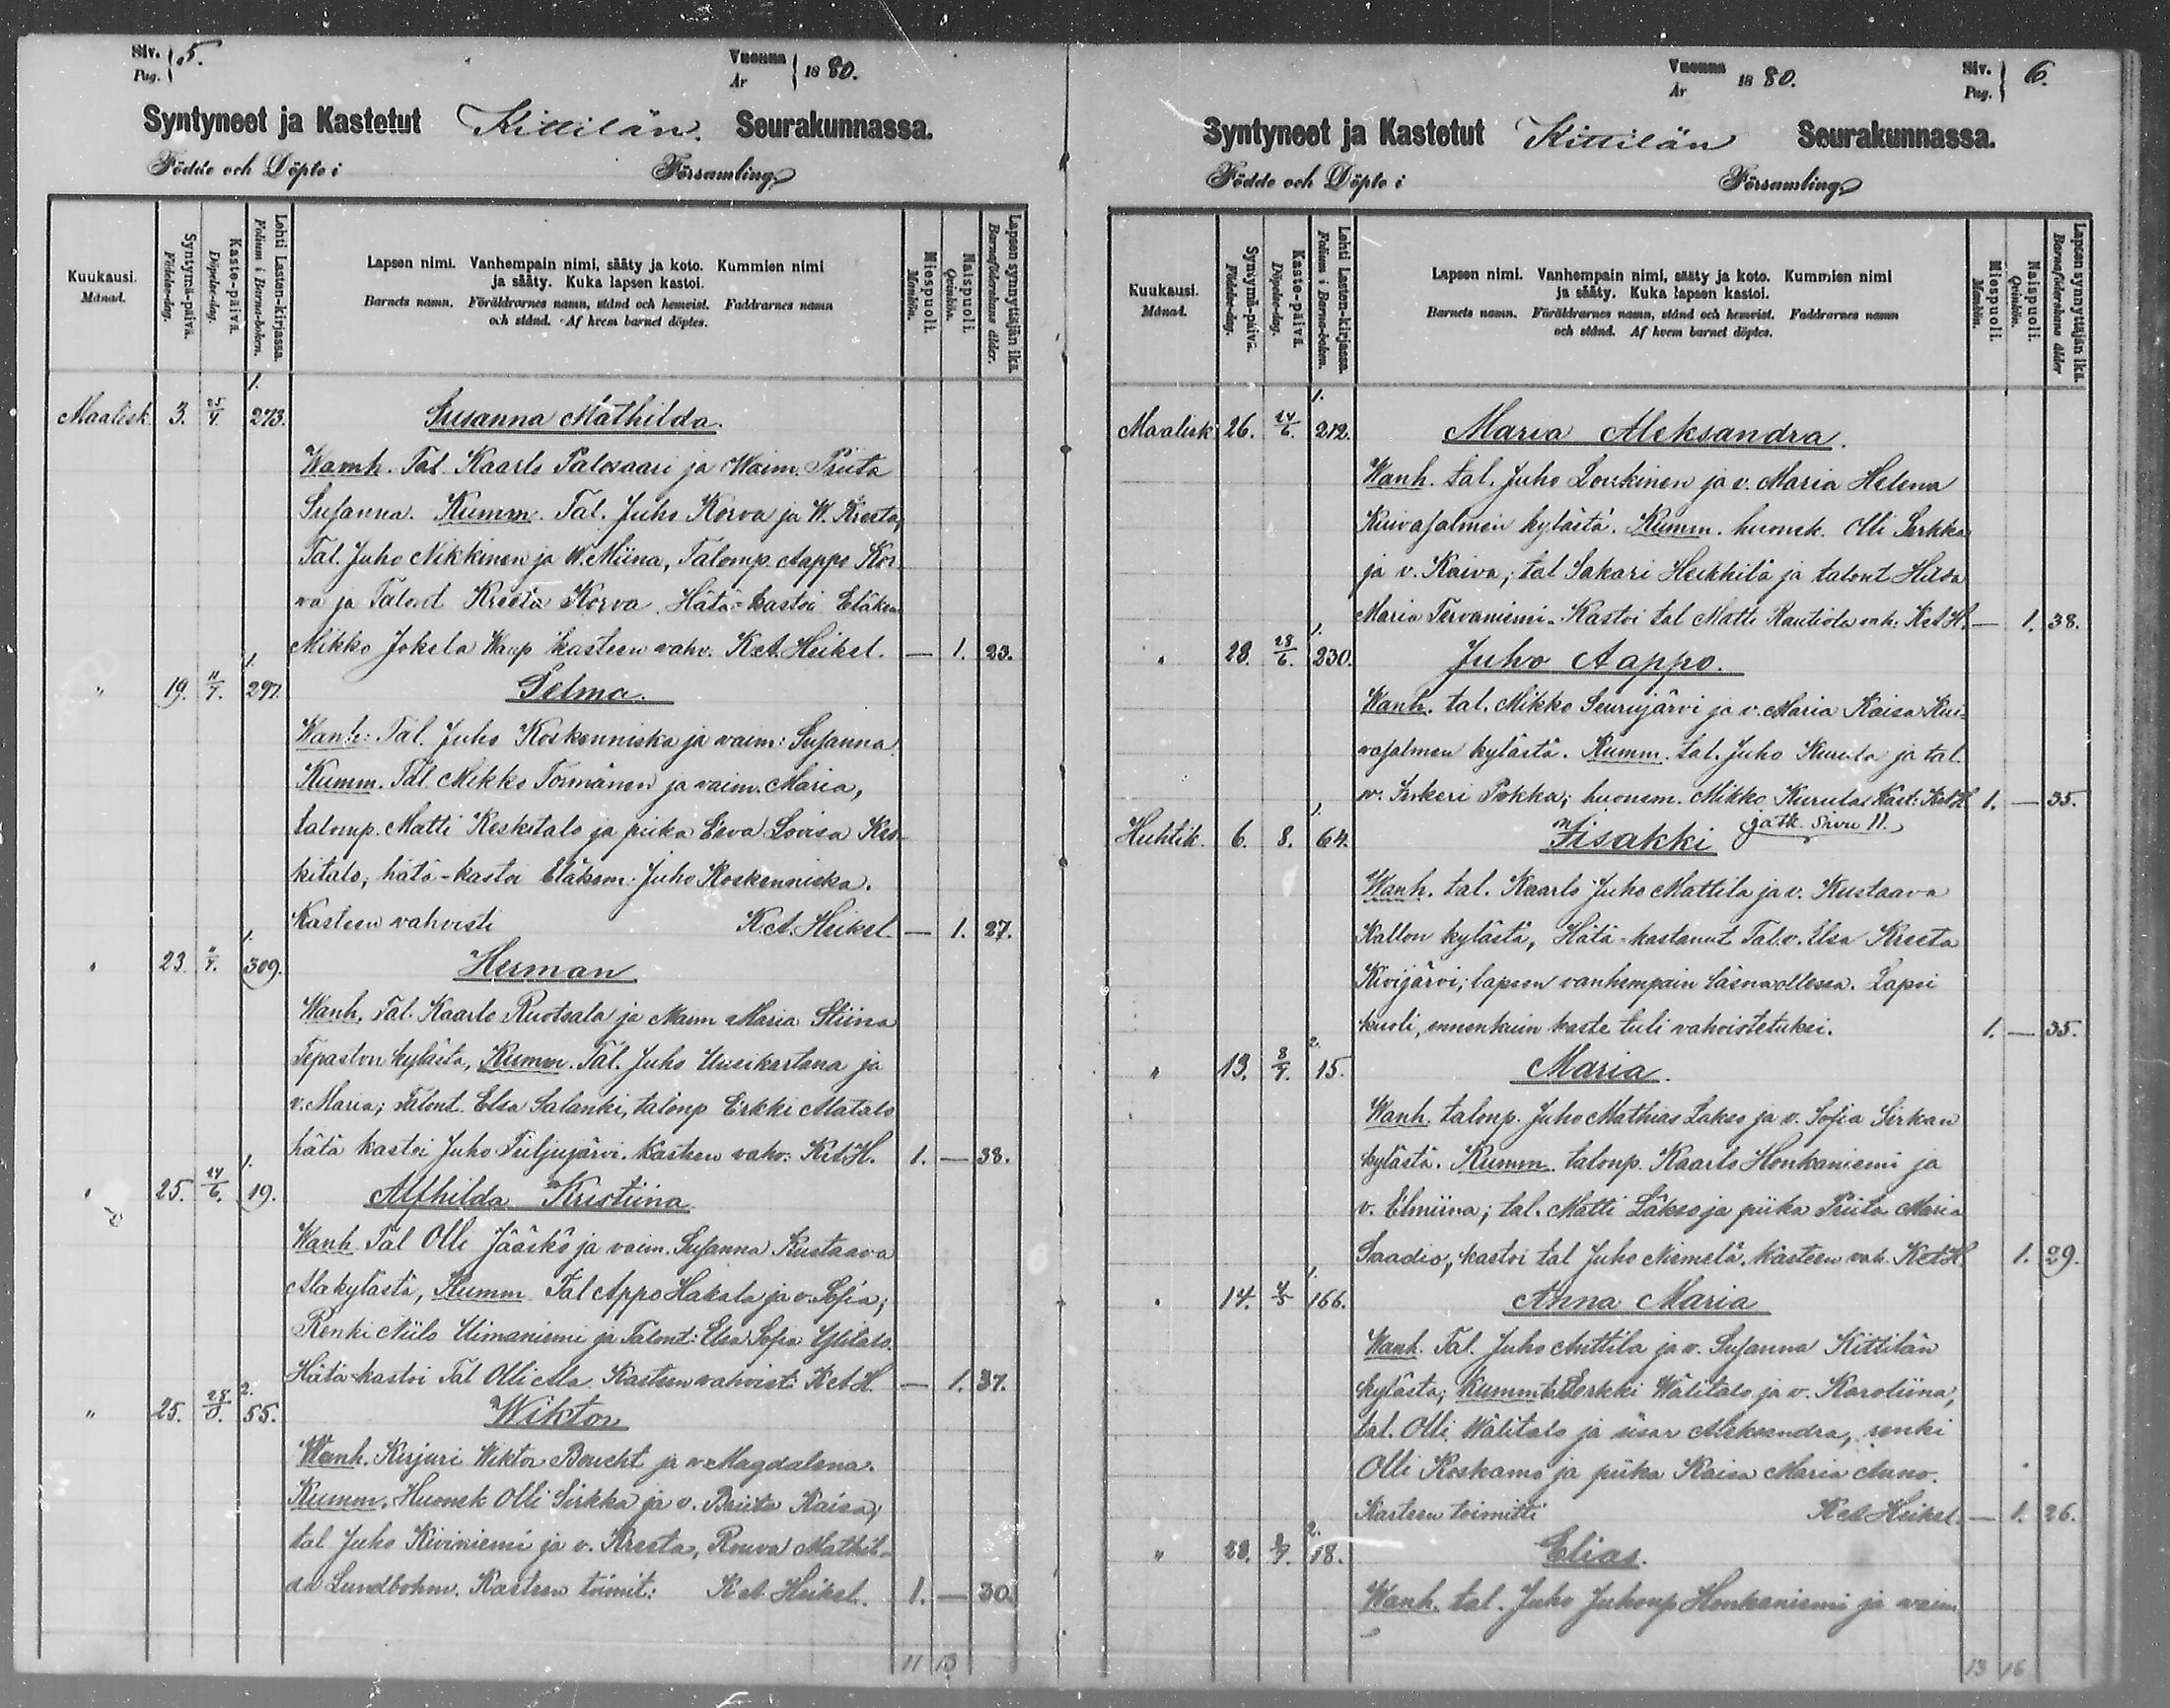 Siv. 5.
Pag.
Vuonna 1880.
År
Syntyneet ja Kastetut Kittilän Seurakunnassa.
Födde och Döpte i Församling
Kuukausi.
Månad.
Syntymä-päivä.
Födelse-dag.
Kaste-päivä.
Döpelse-dag.
Lehti Lasten-kirjassa.
Folium i Barna-boken.
Lapsen nimi. Vanhempain nimi, sääty ja koto. Kummien nimi
ja sääty. Kuka lapsen kastoi.
Barnets namn. Föräldrarnes namn, stånd och hemvist. Faddrarnes namn
och stånd. Af hvem barnet döptes.
Miespuoli.
Mankön.
Naispuoli.
Qvinkön.
Lapsen synnyttäjän ikä.
Barnaföderskans ålder.
Maalisk. 3. 25/4. 1. 273. Susanna Mathilda.
Wanh. Tal. Kaarlo Palosaari ja Waim. Priita
Susanna. Kumm. Tal. Juho Korva ja W. Kreeta,
Tal. Juho Nikkinen ja W. Miina, Talonp. Aappo Kor
va ja Talont Kreeta Korva. Hätä-kastoi Eläkem
Mikko Jokela Waup kasteen vahv. K.A. Heikel. — 1. 23.
" 19. 11/7. 1. 297. Selma.
Wanh: Tal. Juho Koskenniska ja vaim: Susanna
Kumm. Tal. Mikko Tormänen ja vaim. Maria,
talonp. Matti Keskitalo ja piika Eeva Lovisa Kes-
kitalo, hätä-kastoi Eläkem. Juho Koskenniska.
Kasteen vahvisti K.A. Heikel. — 1. 27.
" 23. 1. 309. Herman
Wanh. Tal. Kaarlo Ruotsala ja Waim Maria Stiina
Tepaston kylästä, Kumm. Tal. Juho Uusikartano ja
v. Maria; Talont. Elsa Salanki, talonp Erkki Matalo
hätä kastoi Juho Puljujärvi. Kasteen vahv. K.A.H. 1. — 38.
" 25. 24/6. 1. 19. Alfhilda Kristiina
Wanh. Tal Olli Jääskö ja vaim. Susanna Kustaava
Alakylästä, Kumm. Tal Appo Hakala ja v. Sofia;
Renki Niilo Uimaniemi ja Talont: Elsa Sofia Ylitalo.
Hätä-kastoi Tal Olli Ala. Kasteen vahvist: K.A.H. — 1. 37.
" 25. 2. 55. Wiktor
Wanh. Kirjuri Wiktor Boucht ja v. Magdalena.
Kumm. Huonek Olli Sirkka ja v. Briita Kaisa;
tal Juho Kiviniemi ja v. Kreeta, Rouva Mathil-
da Lundbohm. Kasteen toimit: K.A. Heikel. 1. — 30.
11 13
Vuonna 1880.
År
Siv. 6.
Pag.
Syntyneet ja Kastetut Kittilän Seurakunnassa.
Födde och Döpte i Församling
Kuukausi.
Månad.
Syntymä-päivä.
Födelse-dag.
Kaste-päivä.
Döpelse-dag.
Lehti Lasten-kirjassa.
Folium i Barna-boken.
Lapsen nimi. Vanhempain nimi, sääty ja koto. Kummien nimi
ja sääty. Kuka lapsen kastoi.
Barnets namn. Föräldrarnes namn, stånd och hemvist. Faddrarnes namn
och stånd. Af hvem barnet döptes.
Miespuoli.
Mankön.
Naispuoli.
Qvinkön.
Lapsen synnyttäjän ikä.
Barnaföderskans ålder
Maalisk 26. 24/6. 1. 212. Maria Aleksandra.
Wanh. tal. Juho Loukinen ja v. Maria Helena
Kuivasalmen kylästä. Kumm. huonek. Olli Sirkka
ja v. Kaiva; tal Sakari Heikkilä ja talont Hilda
Maria Tervaniemi. Kastoi tal Matti Rautiola vah. K.A.H. — 1. 38.
" 28. 28/6. 1. 230. Juho Aappo.
Wanh. tal. Mikko Seurujärvi ja v. Maria Kaisa Kui-
vasalmen kylästä. Kumm. tal. Juho Kurula ja tal.
v. Inkeri Pokka; huonem. Mikko Kurula Kast: K.A.H. 1. — 35.
jatk. Sivu 11.
Huhtik. 6. 8. 1. 64. Iisakki
Wanh. tal. Kaarlo Juho Mattila ja v. Kustaava
Kallon kylästä, Hätä-kastanut Tal.v. Elsa Kreeta
Kivijärvi; lapsen vanhempain läsnäollessa. Lapsi
kuoli, ennenkuin kaste tuli vahvistetuksi. 1. — 35.
" 13. 8/7. 2. 15. Maria.
Wanh. talonp. Juho Mathias Lakso ja v. Sofia Sirkan
kylästä. Kumm. talonp. Kaarlo Honkaniemi ja
v. Elmiina; tal. Matti Lakso ja piika Priita Maria
Saadio, kastoi tal Juho Niemelä. Kasteen vah. K.A.H. 1. 29.
" 14. 4/5 1. 166. Anna Maria
Wanh. Tal. Juho Anttila ja v. Susanna Kittilän
kylästä; Kumm tal Eerkki Wälitalo ja v. Karoliina,
tal. Olli Wälitalo ja sisar Aleksandra, renki
Olli Koskamo ja piika Kaisa Maria Auno.
Kasteen toimitti K.A. Heikel. — 1. 26.
" 28. 2. 18. Elias.
Wanh. tal. Juho Juhonp Honkaniemi ja vaim
13 16